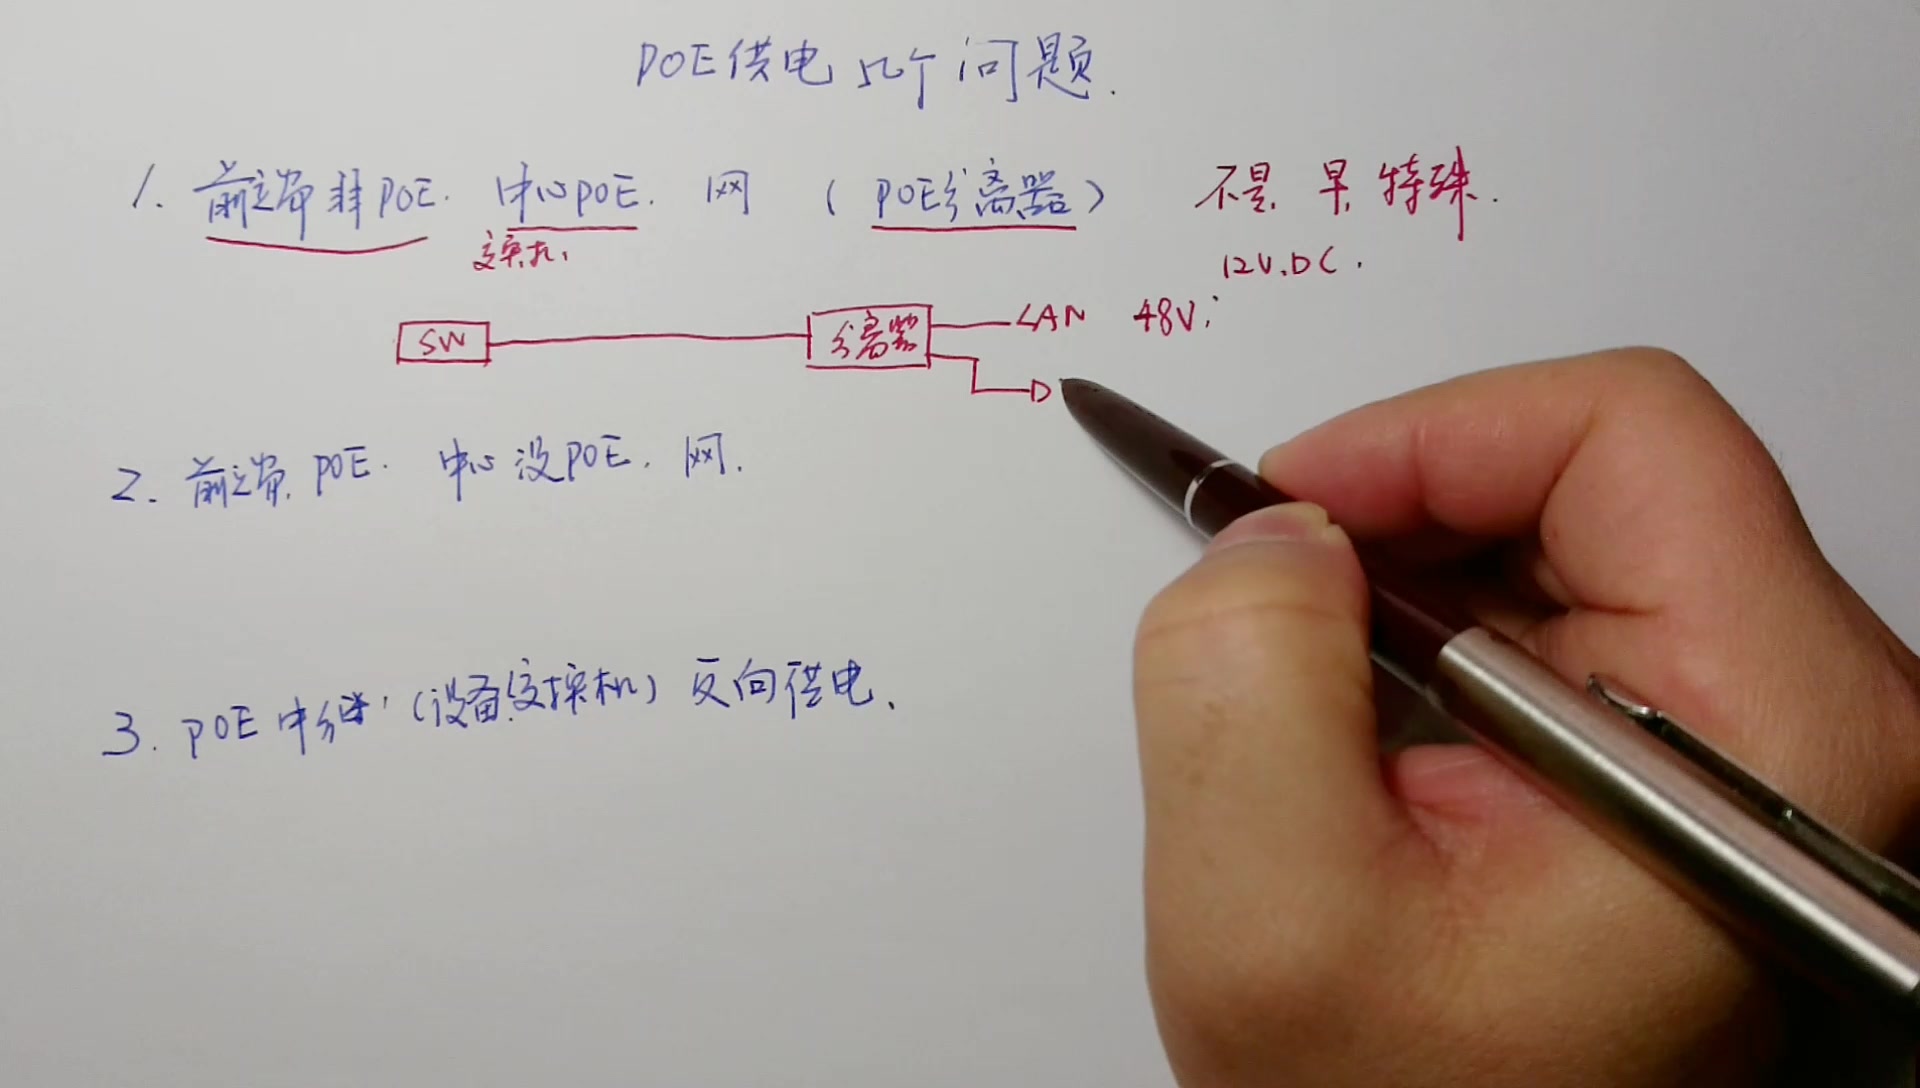 POE供电几个问题.
1. 前端非POE. 中心POE. 网 (POE分离器) 不是 早 特殊.
交换机 12V.DC.
SW 分离器 LAN 48V;
D
2. 前端POE. 中心没POE. 网.
3. POE中继 (设备交换机) 反向供电.